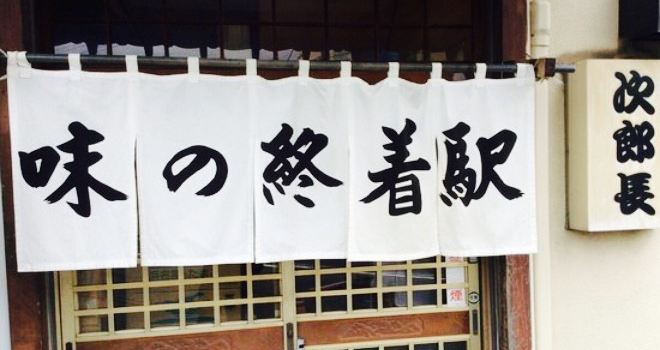 味の終着駅
次郎長
煙